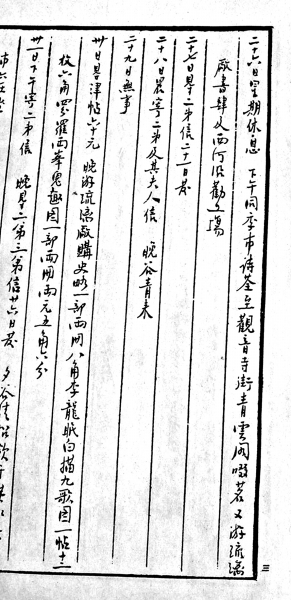 二十六日星期休息 下午同季市诗荃至觀音寺街青雲阁啜茗又游流璃
厰書肆及西河沿勸工場
二十七日得二弟信二十一日发
二十八日晨寄二弟及其夫人信 晚谷青来
二十九日無事
卅日得津帖六十元 晚游流璃厰購史略一部兩冊八角李龍眠白描九歌图一帖十二
枚六角四分羅兩峯鬼趣图一部兩冊兩元五角六分
卅一日下午寄二弟信 晚得二弟三弟信廿六日发 夕谷清招飲于
三